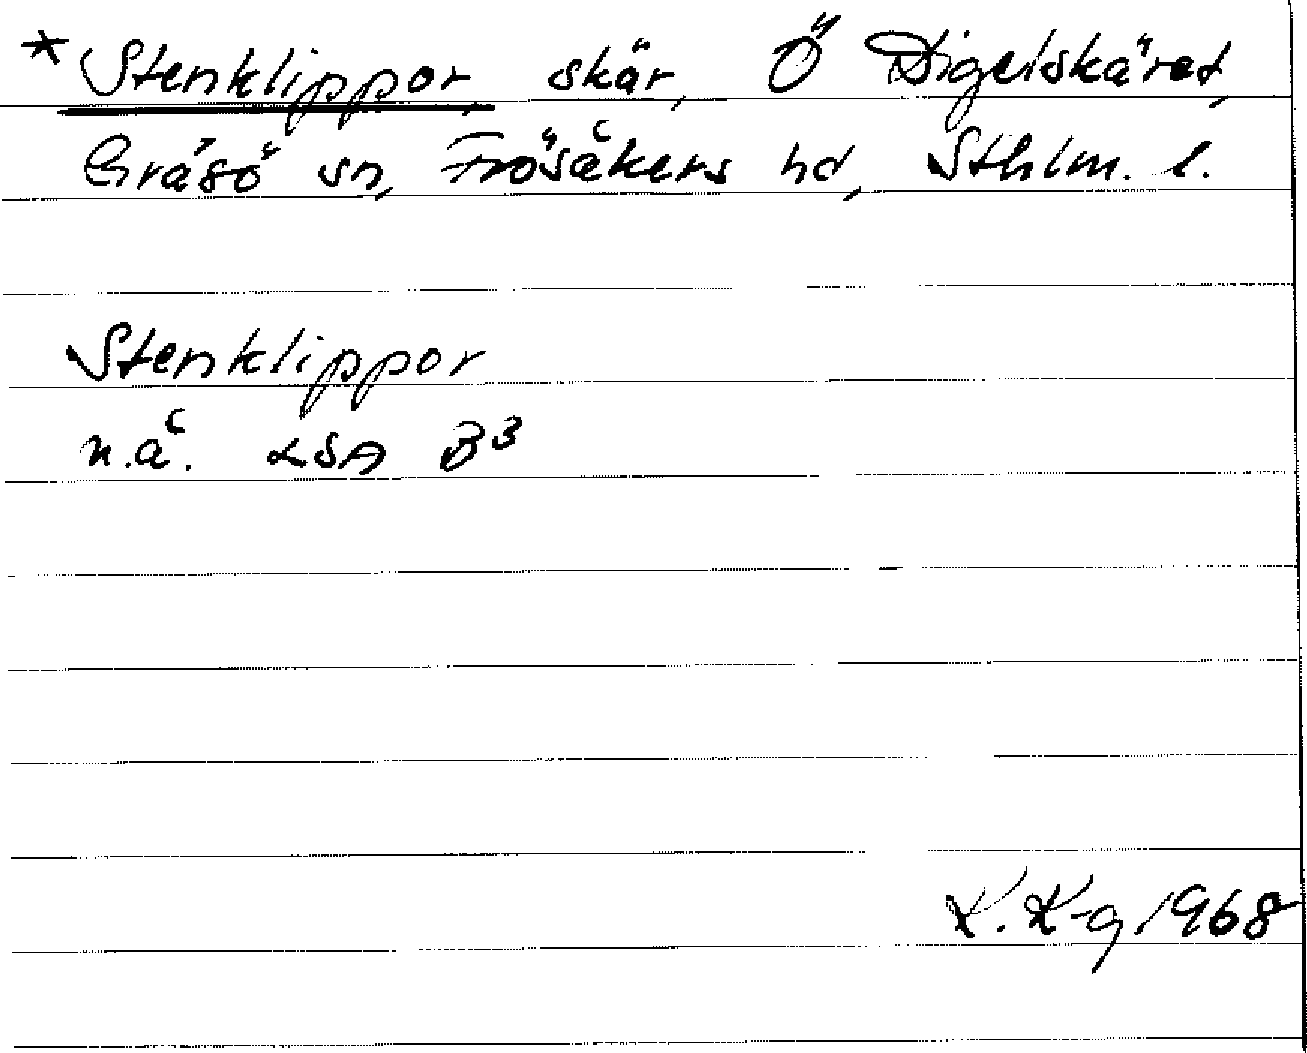 * Stenklippor, skär, Ö Digelskäret,
Gräsö sn, Frösåkers hd, Sthlm. l.
Stenklippor
n.å. LSA B3
K. K-g 1968